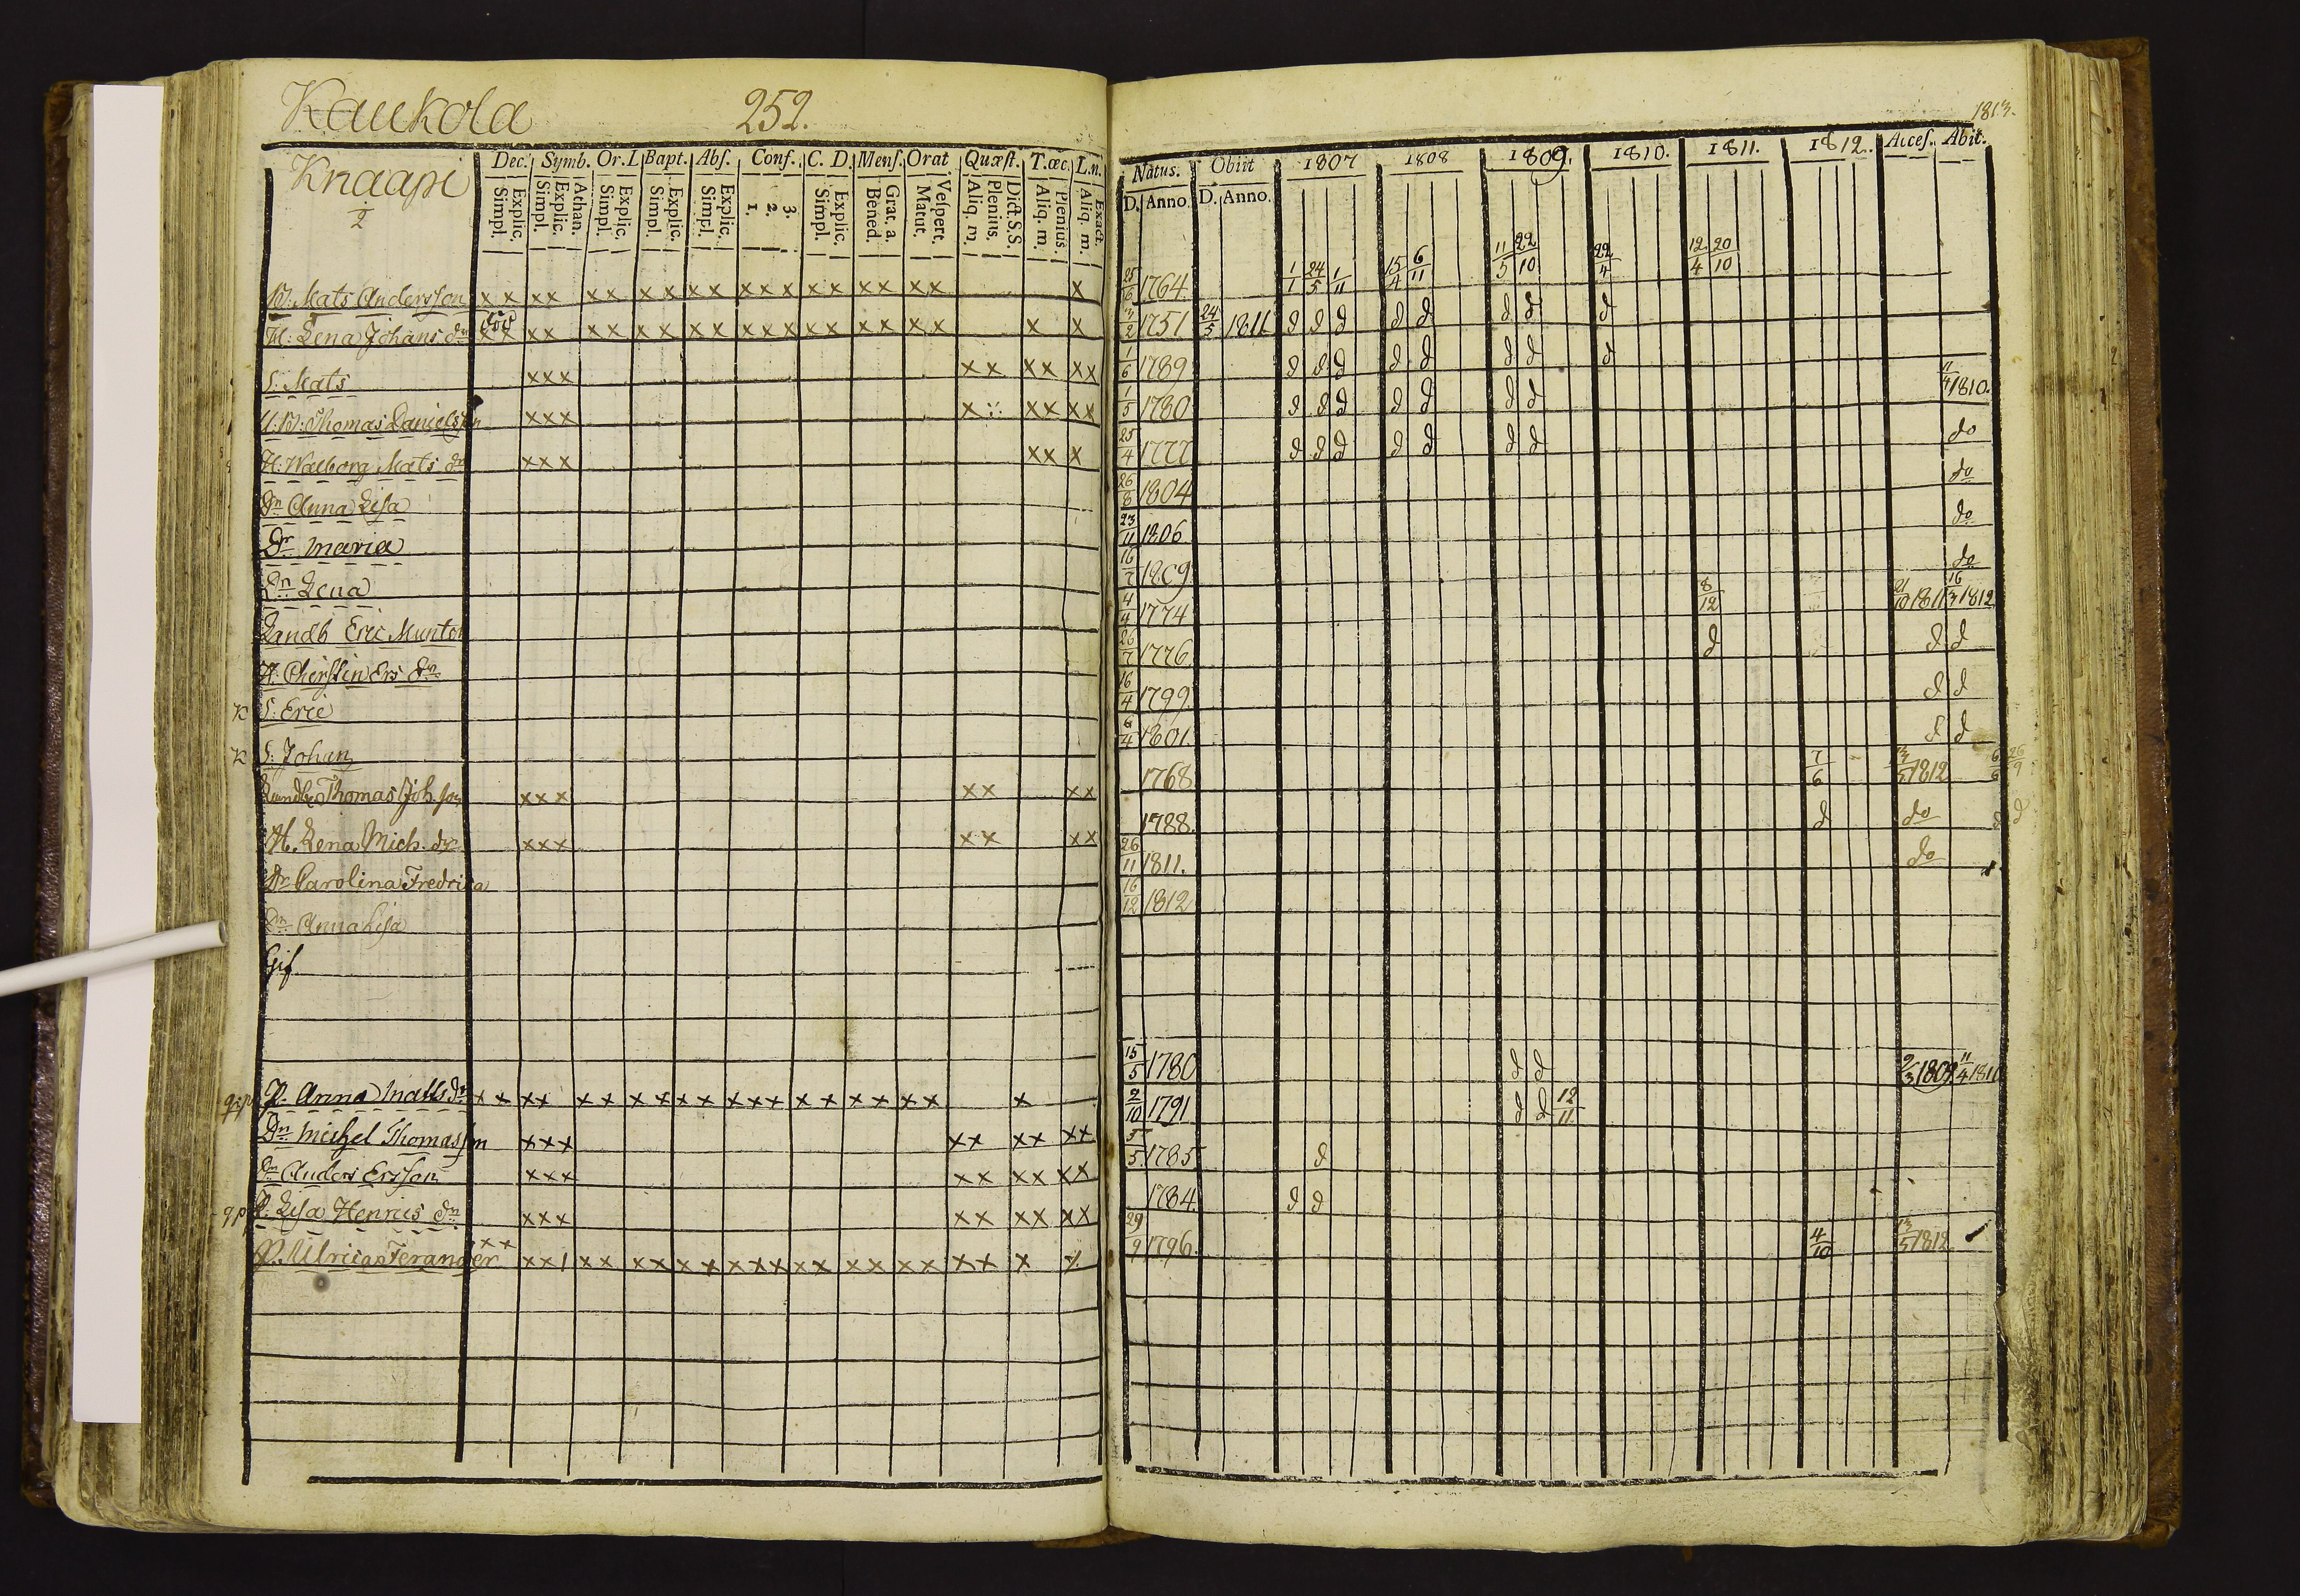 Kaukola 252.
Knaapi
2
Dec. Symb. Or. I. Bapt. Abſ. Conf. C. D. Menſ. Orat Quæſt. T.œc. L.n.
Explic. Simpl. Athan. Explic. Simpl. Explic. Simpl. Explic. Simpl. Explic. Simpl. 3. 2. 1. Explic. Simpl. Grat. a. Bened. Veſpert. Matut. Dict. S.S. Plenius. Aliq. m. Plenius. Aliq. m. Exact. Aliq. m.
B: Mats Andersſon x x x x x x x x x x x x x x x x x x x x x
H: Lena Johans dr död x x x x x x x x x x x x x x x x x x x x x
S: Mats x x x x x x x x x
Thomas Danielsson x x x x x x x x
H: Walborg Mats dr x x x x x x
Dr Anna Lisa
Dr Maria
Dr Lena
Landb Eric Munter
H: Cherstin Ers dr
K S: Eric
K S: Johan
Landb Thomas Joh.son x x x x x x x
H. Lena Mich. dr x x x x x x x
Dr Carolina Fredrica
Dr Anna Lisa
Gif
P. Anna Matts dr x x x x x x x x x x x x x x x x x x x x
Dn Michel Thomasson x x x x x x x x x
Dn Anders Ersson x x x x x x x x x
P. Lisa Henrics dr x x x x x x x x x
P. Ulrica Terander x x x x x x x x x x x x x x x x x x x x x x x
1813.
Natus. Obiit 1807 1808 1809. 1810. 1811. 1812. Acceſ. Abit.
D. Anno. D. Anno.
25/6 1764 1/1 24/5 1/11 15/4 6/11 11/5 22/10 22/4 12/4 20/10
3/2 1751 24/5 1811 d d d d d d d d
1/6 1789 d d d d d d d d
1/5 1780 d d d d d d d 11/4 1810.
25/4 1777 d d d d d d d do
26/8 1804 do
23/11 1806 do
16/7 1809 do
4/4 1774 8/12 21/10 1811 16/3 1812
26/7 1776. d d d
16/4 1799 d d
6/4 1801. d d
1768 7/6 13/5 1812 6/6 26/9
1788. d do d d
26/11 1811. do
16/12 1812
15/5 1780 d d 2/3 1809 11/4 1810
2/10 1791 d d 12/11
5/5 1785 d
1784. d d
29/9 1796. 4/10 13/5 1812